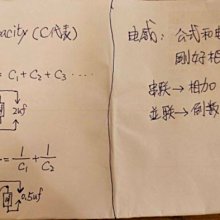 pacity (C代表)
= C₁ + C₂ + C₃ ....
2uf
= 1/C₁ + 1/C₂
0.5uf
电感: 公式和电
刚好相
串联 → 相加
並联 → 倒数